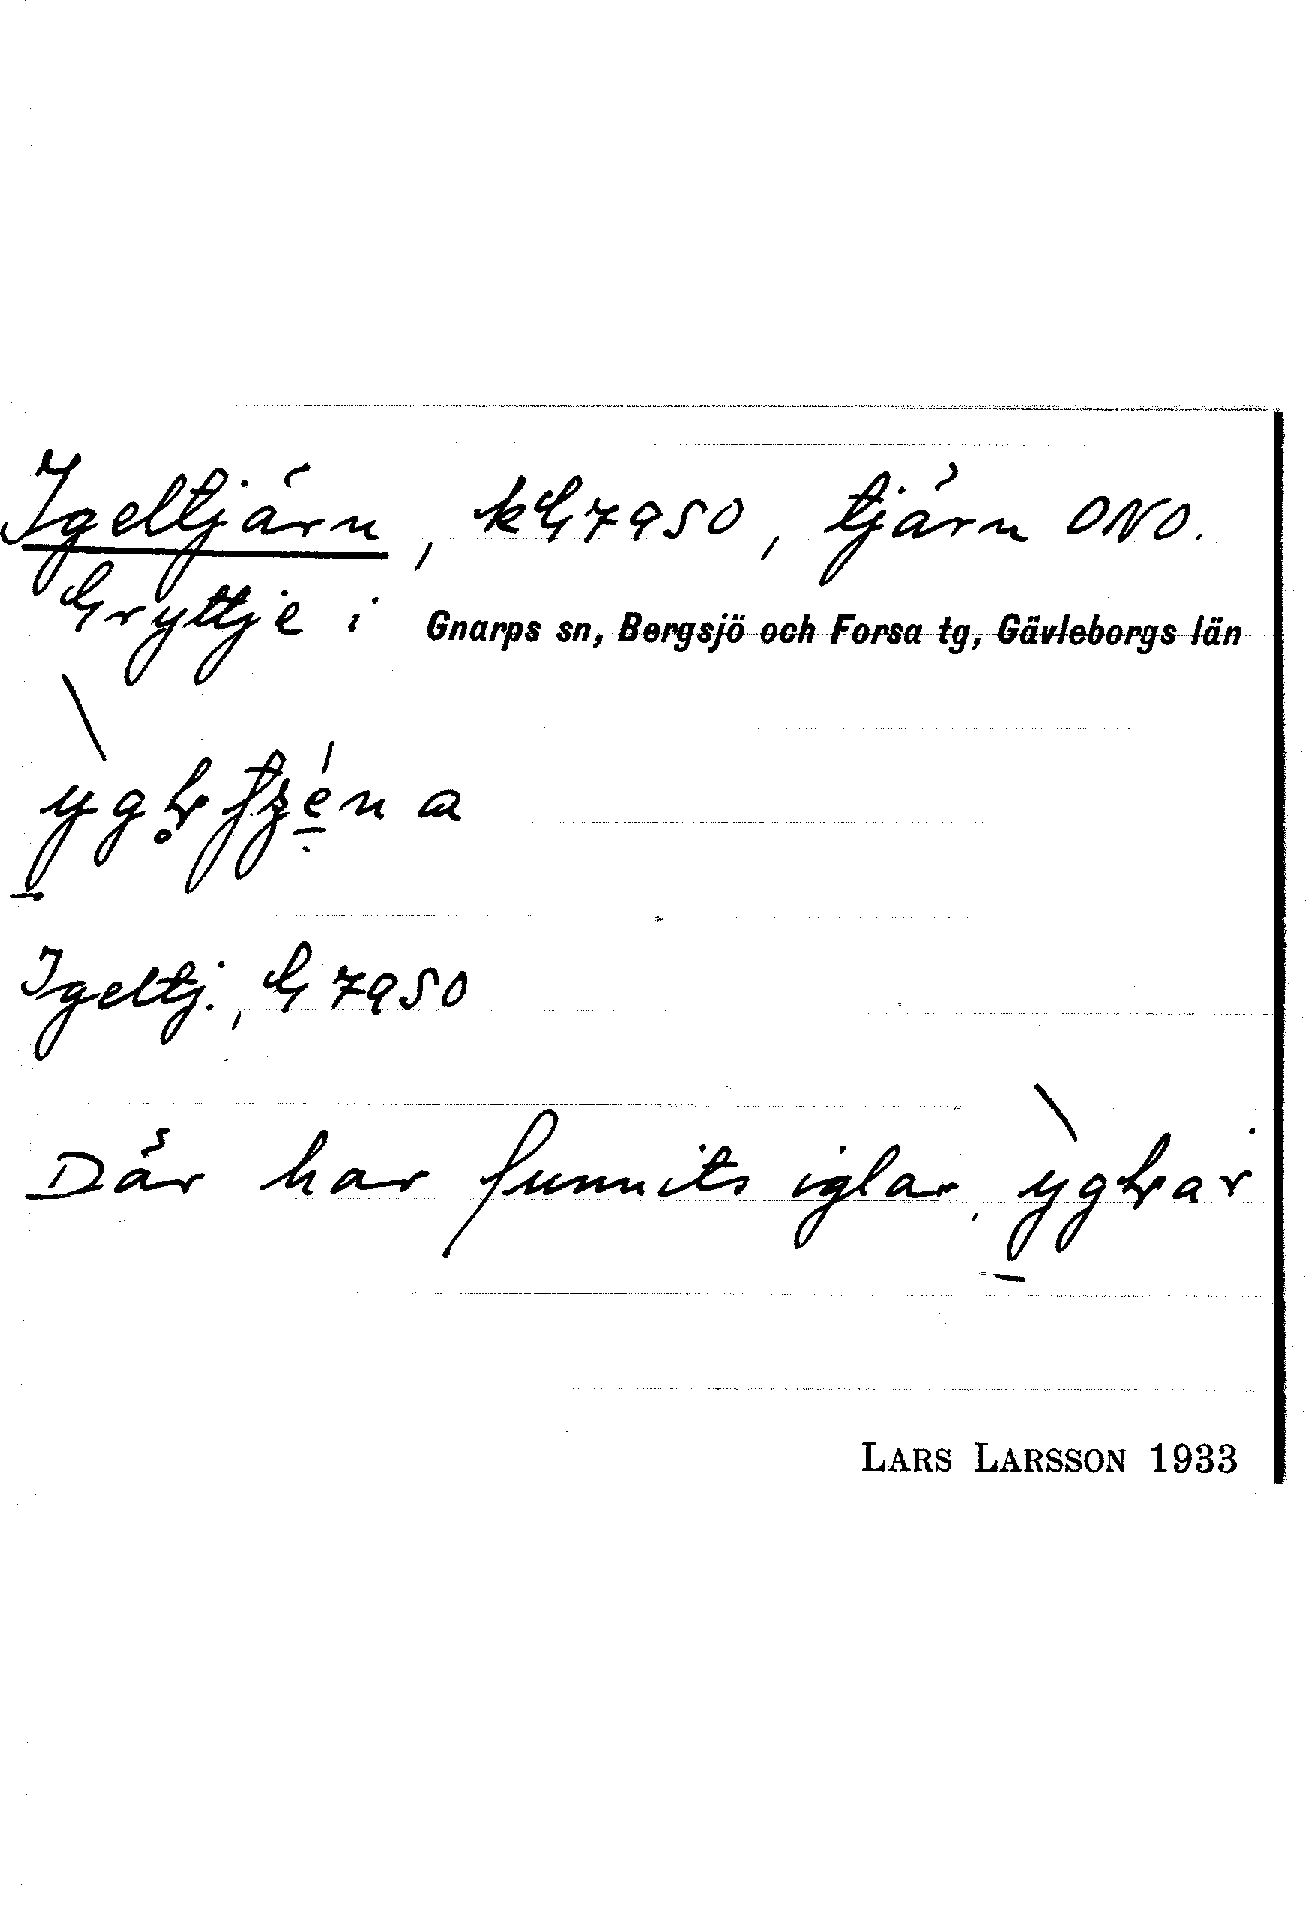 Igeltjärn, kG7950, tjärn ONO.
Gryttje i Gnarps sn, Bergsjö och Forsa tg, Gävleborgs län
Igeltj., G7950
Där har funnits iglar,
LARS LARSSON 1933